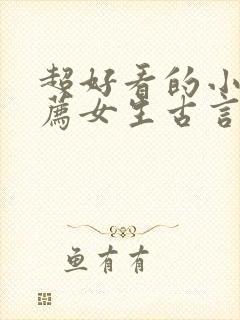 超好看的小
薦女生古言
鱼有有